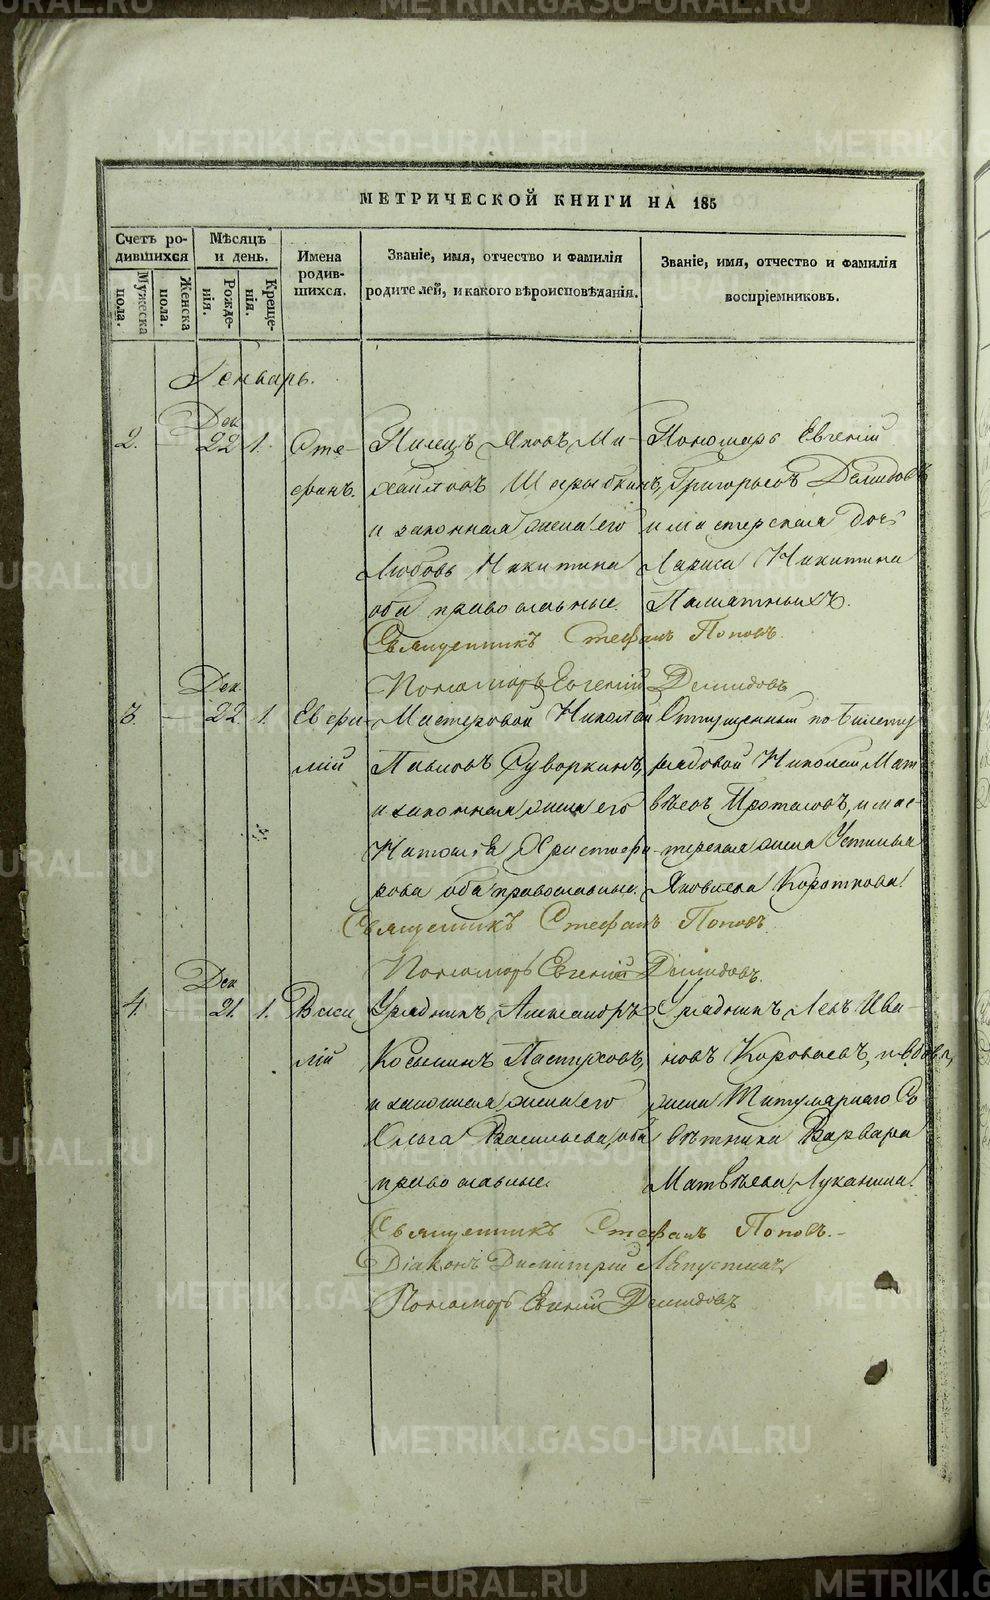 МЕТРИЧЕСКОЙ КНИГИ НА 185
Счетъ ро-
дившихся
Мужеска
пола.
Женска
пола.
Мѣсяцъ
и день.
Рожде-
нія.
Креще-
нія.
Имена
родив-
шихся.
Званіе, имя, отчество и фамилія
родителей, и какого вѣроисповѣданія.
Званіе, имя, отчество и фамилія
воспріемниковъ.
Генварь.
Дек.
2. — 22 1.
Сте-
фанъ.
Писецъ Яковъ Ми-
хайловъ
и законная жена его
Любовь Никитина
оба православные.
Пономарь Евгеній
Григорьевъ Демидовъ
и мастерская дочь
Лариса Никитина
Памятныхъ.
Священникъ Стефанъ Поповъ.
Пономарь Евгеній Демидовъ
Дек.
3. — 22. 1.
Евфи-
мій
Мастеровой Николай
Павловъ Суворкинъ,
и законная жена его
Наталія Христофо-
рова оба православные.
Отпущенный по билету
рядовой Николай Мат
вѣевъ Протасовъ, и мас-
терская жена Устинья
Яковлева Короткова.
Священникъ Стефанъ Поповъ
Пономарь Евгеній Демидовъ.
Дек
4. — 21. 1.
Васи
лій
Урядникъ Александръ
Косминъ Пастуховъ,
и законная жена его
Ольга Васильева, оба
православные.
Урядникъ Левъ Ива-
новъ Короваевъ, и вдова,
жена Титулярнаго Со
вѣтника Варвара
Матвѣева Луканина.
Священникъ Стефанъ Поповъ.-
Діаконъ Димитрій
Пономарь Евгеній Демидовъ
METRIKI.GASO-URAL.RU